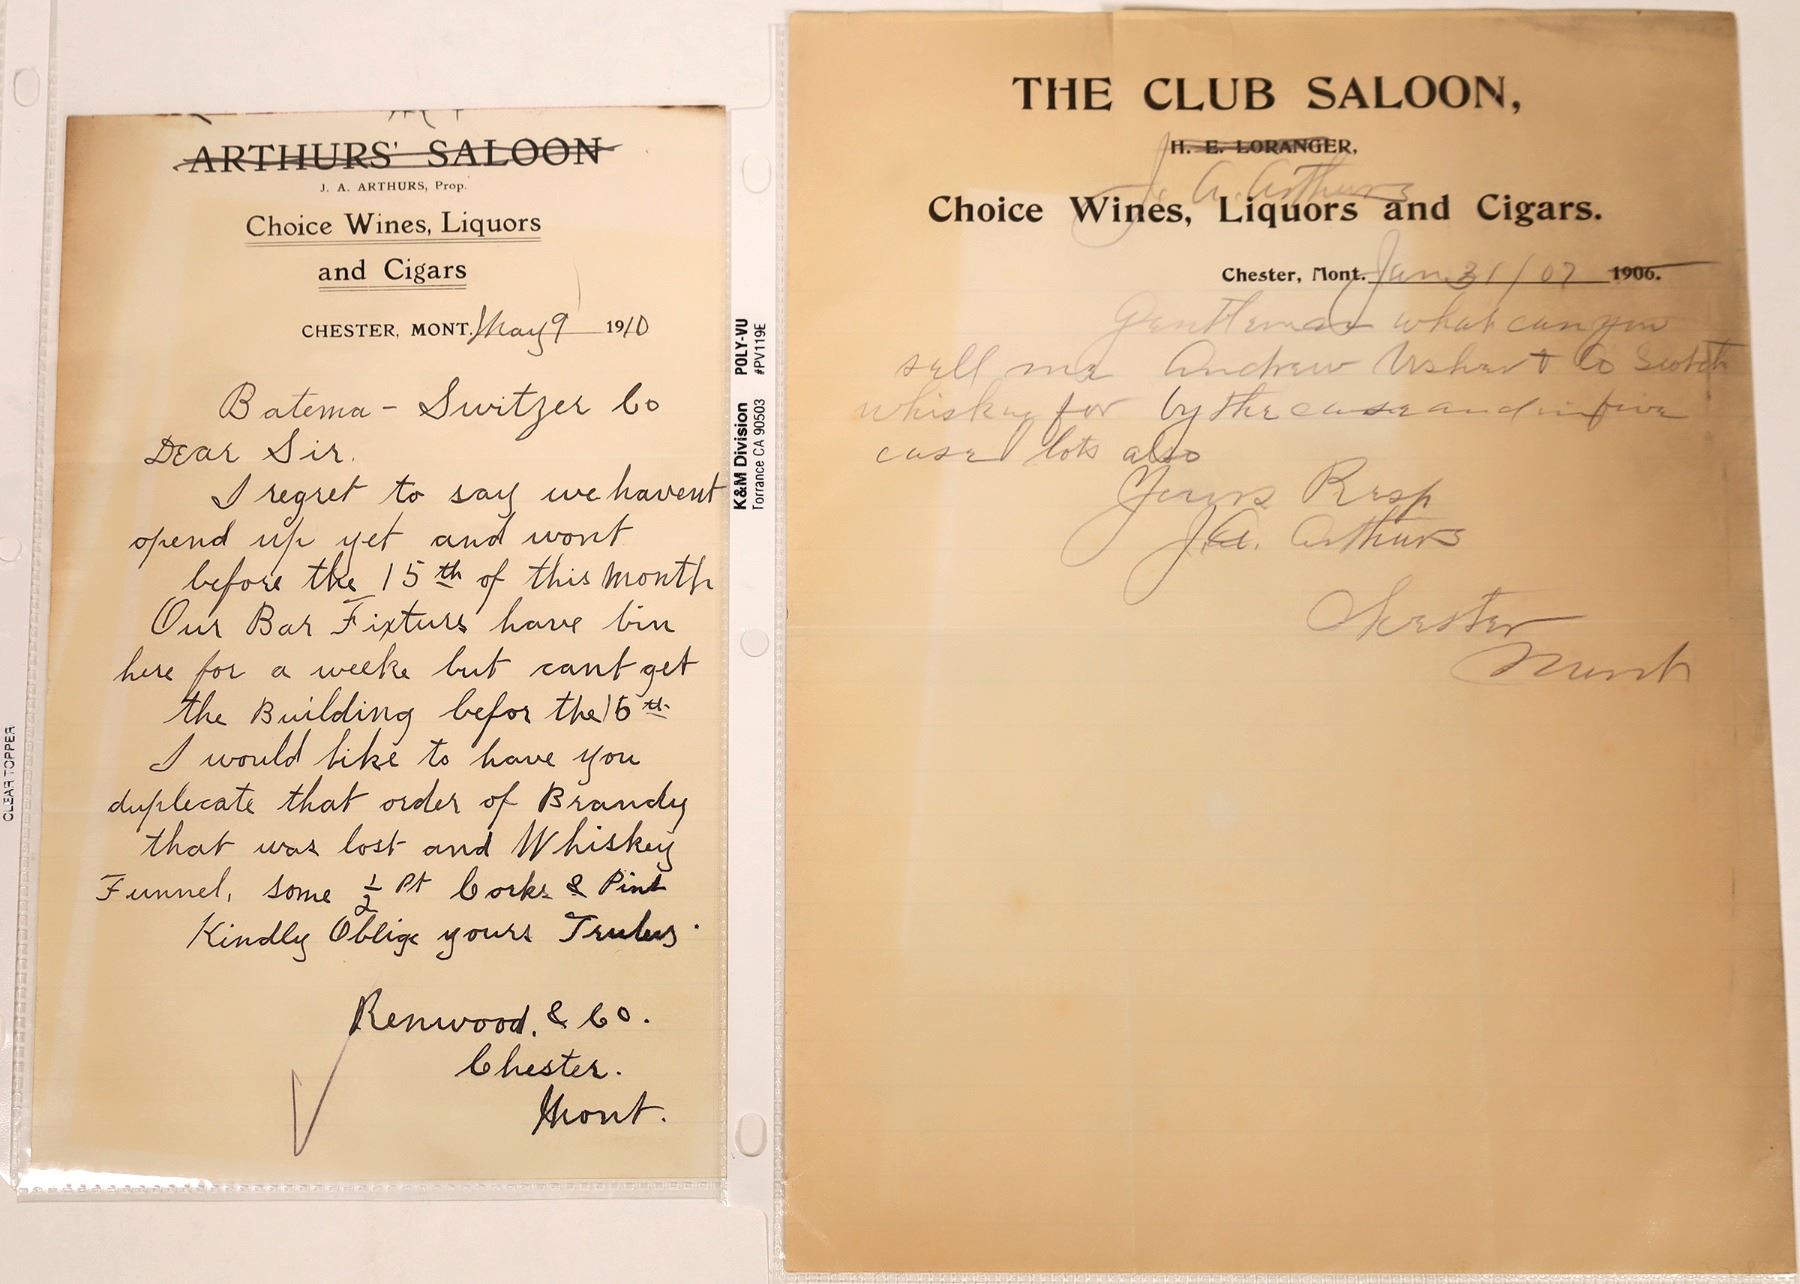 ARTHURS' SALOON
J. A. ARTHURS, Prop.
Choice Wines, Liquors
and Cigars
CHESTER, MONT. May 9 1910
Batema - Switzer Co
Dear Sir.
I regret to say we havent
opend up yet and wont
before the 15th of this Month
Our Bar Fixturs have bin
here for a weeke but cant get
the Building befor the 15th
I would like to have you
duplecate that order of Brandy
that was lost and Whiskey
Funnel, some 1/2 Pt Corks & Pint
Kindly Oblige yours Truley.
Renwood. & Co.
Chester.
Mont.
CLEAR TOPPER
K&M Division POLY-VU
Torrance CA 90503 #PV119E
THE CLUB SALOON,
H. E. LORANGER,
J. A. Arthurs
Choice Wines, Liquors and Cigars.
Chester, Mont. Jan 31/07 1906.
Gentleman what can you
sell me Andrew Usher & Co Scotch
whiskey for by the case and in five
case lots also
Yours Resp
J. A. Arthurs
Chester
Mont